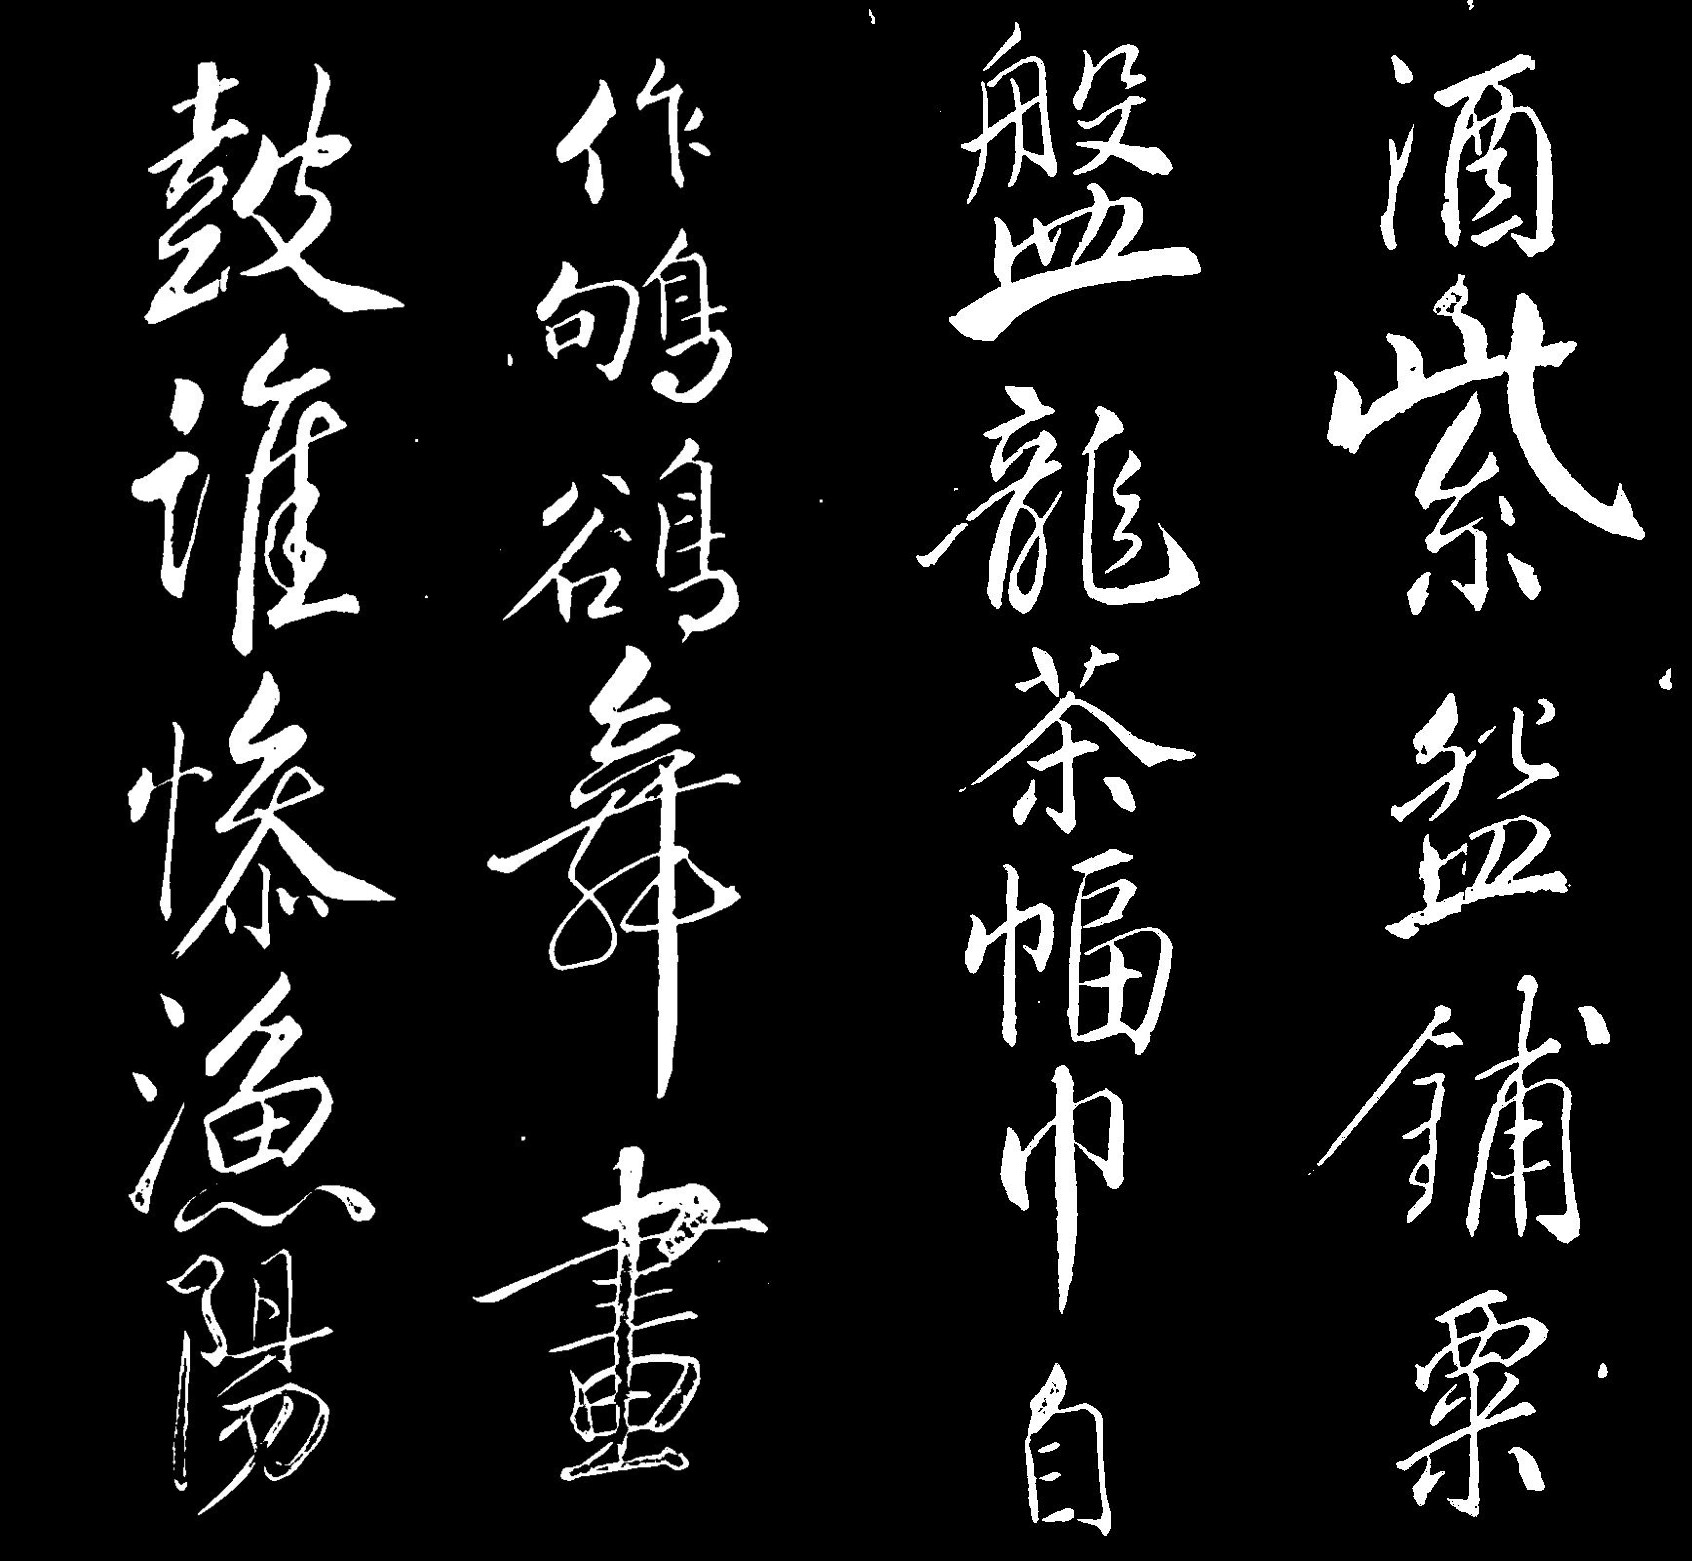 酒紫盌鋪粟
盤龍茶幅巾自
作鴝鵒舞畫
鼓誰慘漁陽